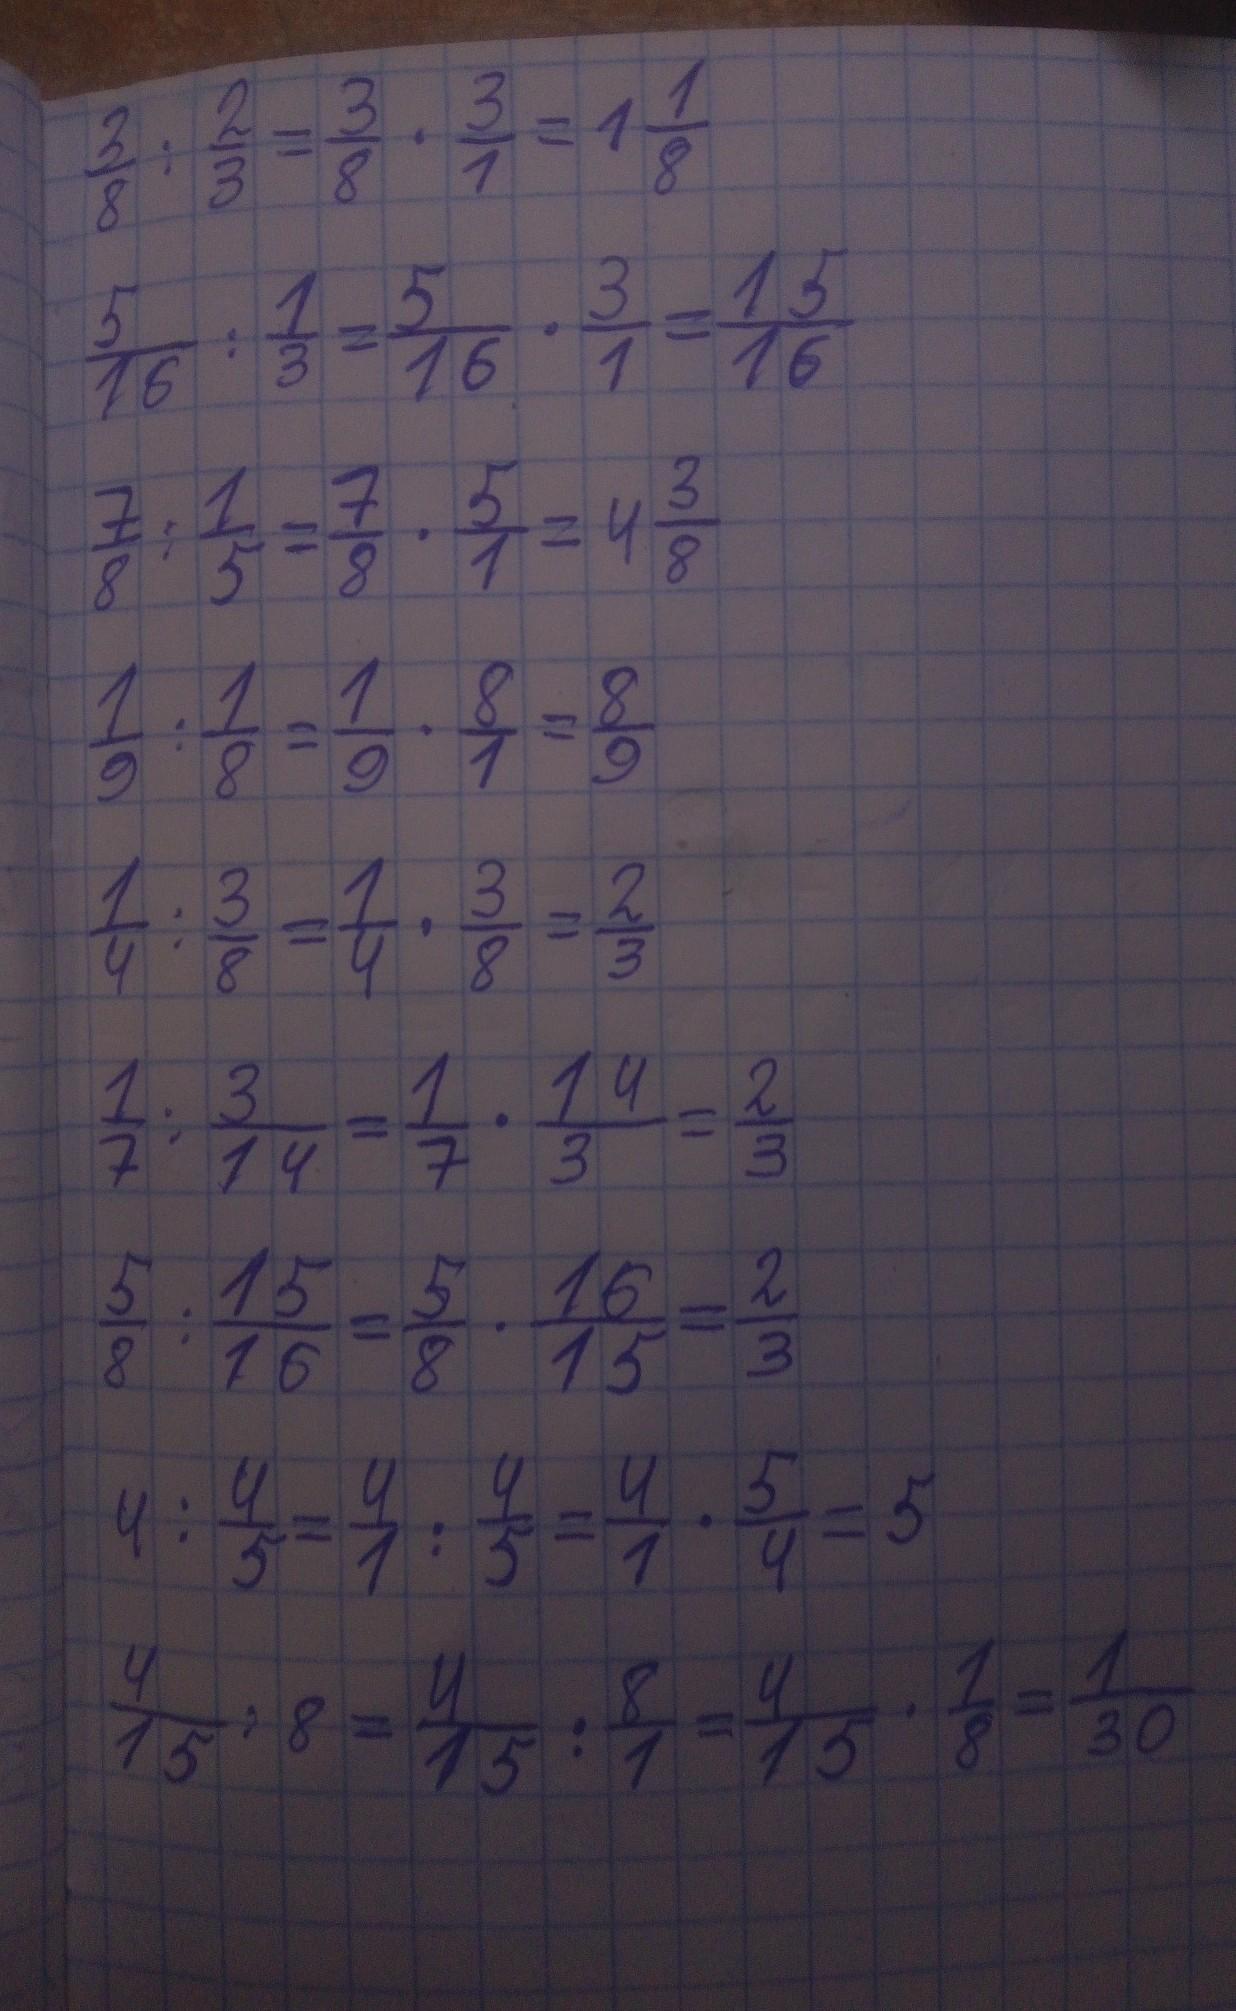 3/8 : 2/3 = 3/8 · 3/1 = 1 1/8
5/16 : 1/3 = 5/16 · 3/1 = 15/16
7/8 : 1/5 = 7/8 · 5/1 = 4 3/8
1/9 : 1/8 = 1/9 · 8/1 = 8/9
1/4 : 3/8 = 1/4 · 3/8 = 2/3
1/7 : 3/14 = 1/7 · 14/3 = 2/3
5/8 : 15/16 = 5/8 · 16/15 = 2/3
4 : 4/5 = 4/1 : 4/5 = 4/1 · 5/4 = 5
4/15 : 8 = 4/15 : 8/1 = 4/15 · 1/8 = 1/30